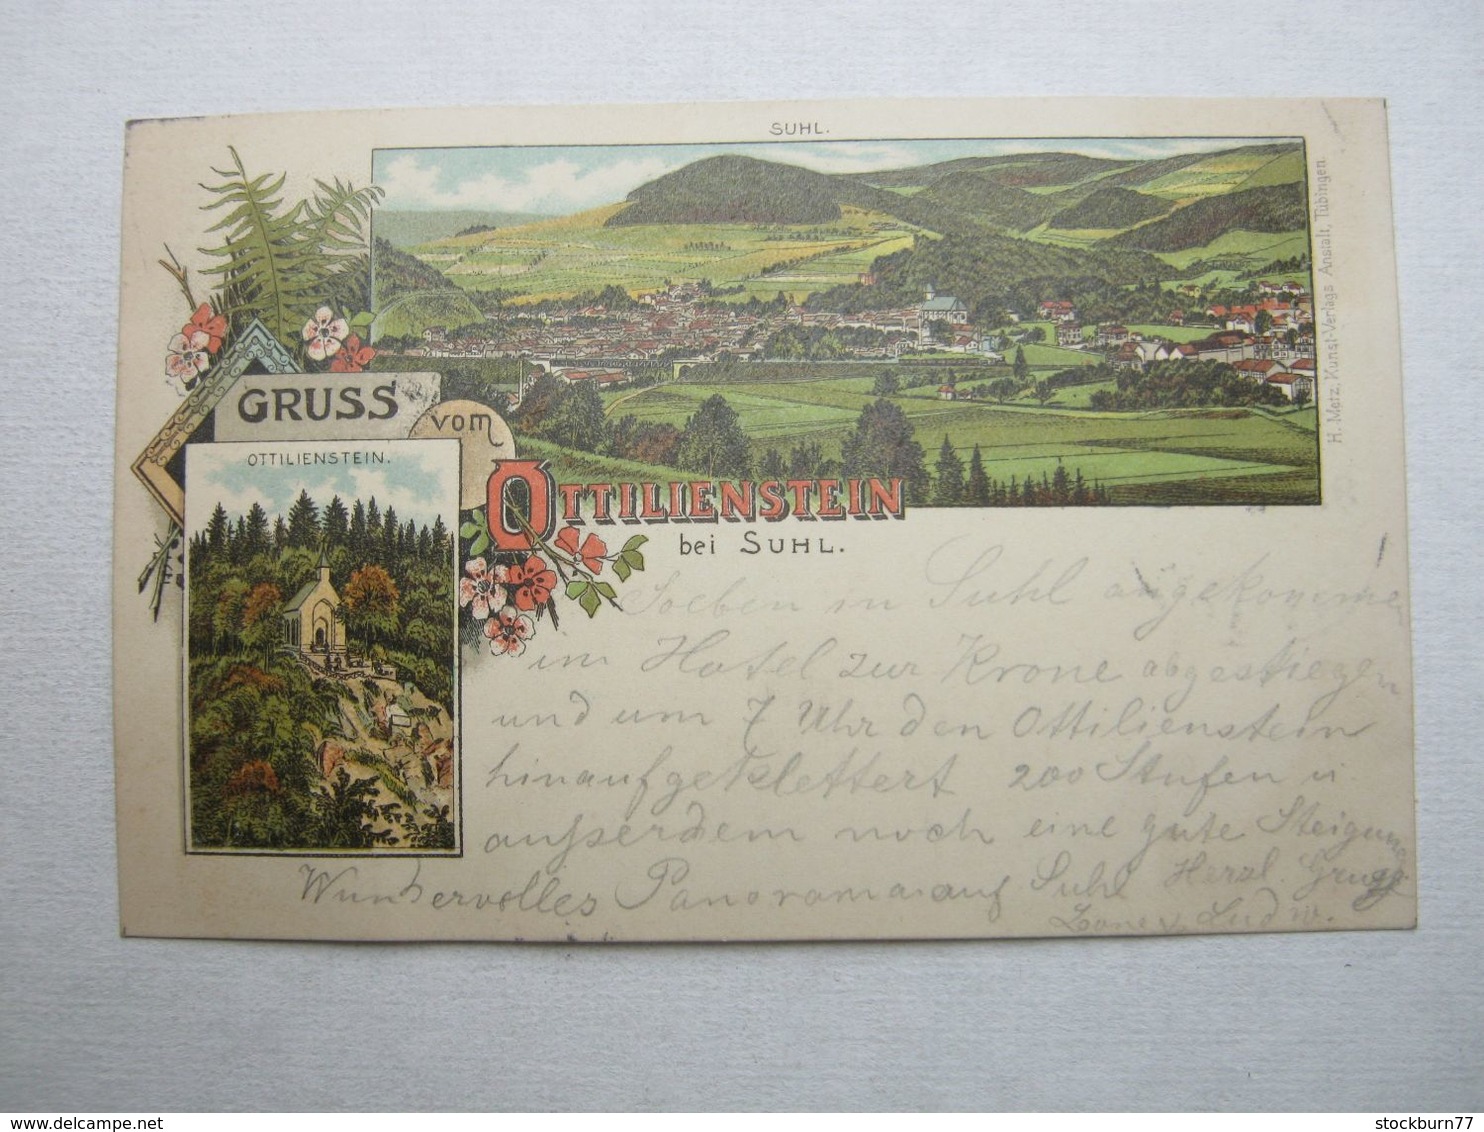 SUHL.
GRUSS
vom
OTTILIENSTEIN
bei SUHL.
OTTILIENSTEIN.
H. Metz, Kunst-Verlags Anstalt, Tübingen
Soeben in Suhl angekommen
im Hotel zur Krone abgestiegen
und um 7 Uhr den Ottilienstein
hinaufgeklettert 200 Stufen u
außerdem noch eine gute Steigung
Wundervolles Panorama auf Suhl Herzl. Gruss
Ludw.
stockburn77